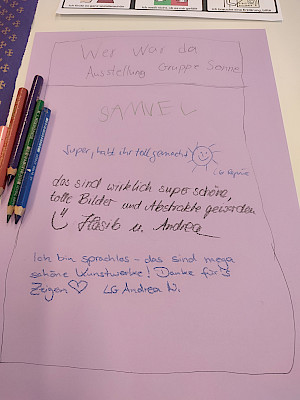 Wer war da
Ausstellung Gruppe Sonne
SAMUEL
Super, habt ihr toll gemacht!
LG
das sind wirklich super schöne,
tolle Bilder und Abstrakte geworden
Hasib u. Andrea
Ich bin sprachlos - das sind mega
schöne Kunstwerke! Danke für's
Zeigen ♡ LG Andrea W.